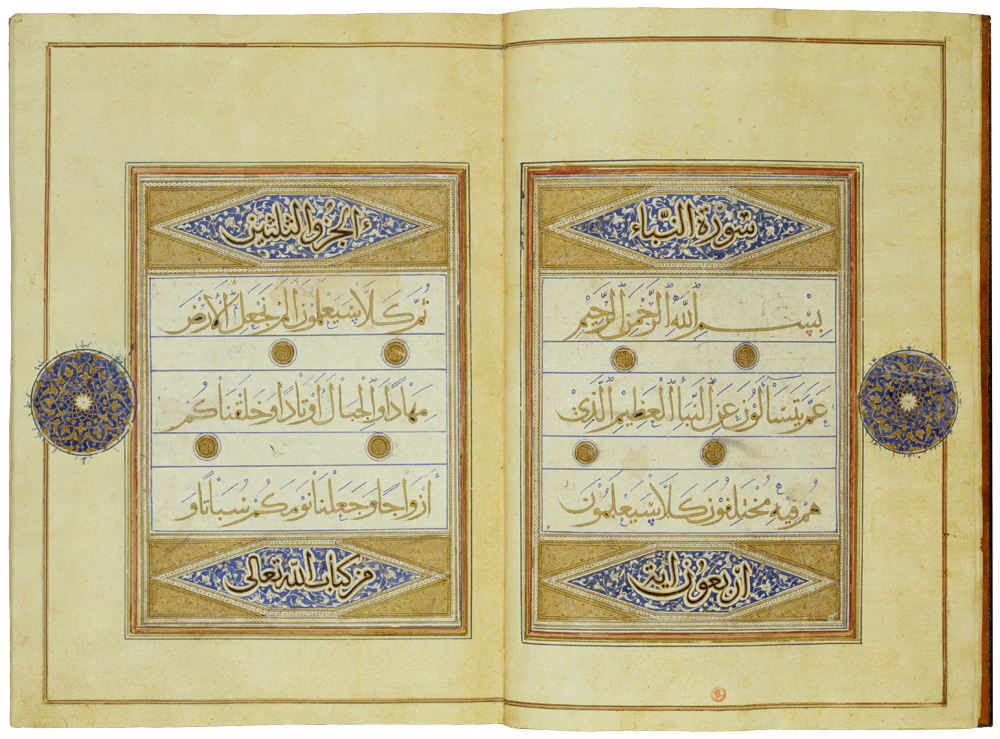 سُورَةُ النَّبَاء
بِسْمِ اللَّهِ الرَّحْمَنِ الرَّحِيمِ
عَمَّ يَتَسَآلُونَ عَنِ النَّبَأِ الْعَظِيمِ الَّذِي
هُمْ فِيهِ مُخْتَلِفُونَ كَلَّا سَيَعْلَمُونَ
اربعون اية
الجزؤ الثلثين
ثُمَّ كَلَّا سَيَعْلَمُونَ أَلَمْ نَجْعَلِ الْأَرْضَ
مِهَادًا وَالْجِبَالَ أَوْتَادًا وَخَلَقْنَاكُمْ
أَزْوَاجًا وَجَعَلْنَا نَوْمَكُمْ سُبَاتًا وَ
من كتاب الله تعالى